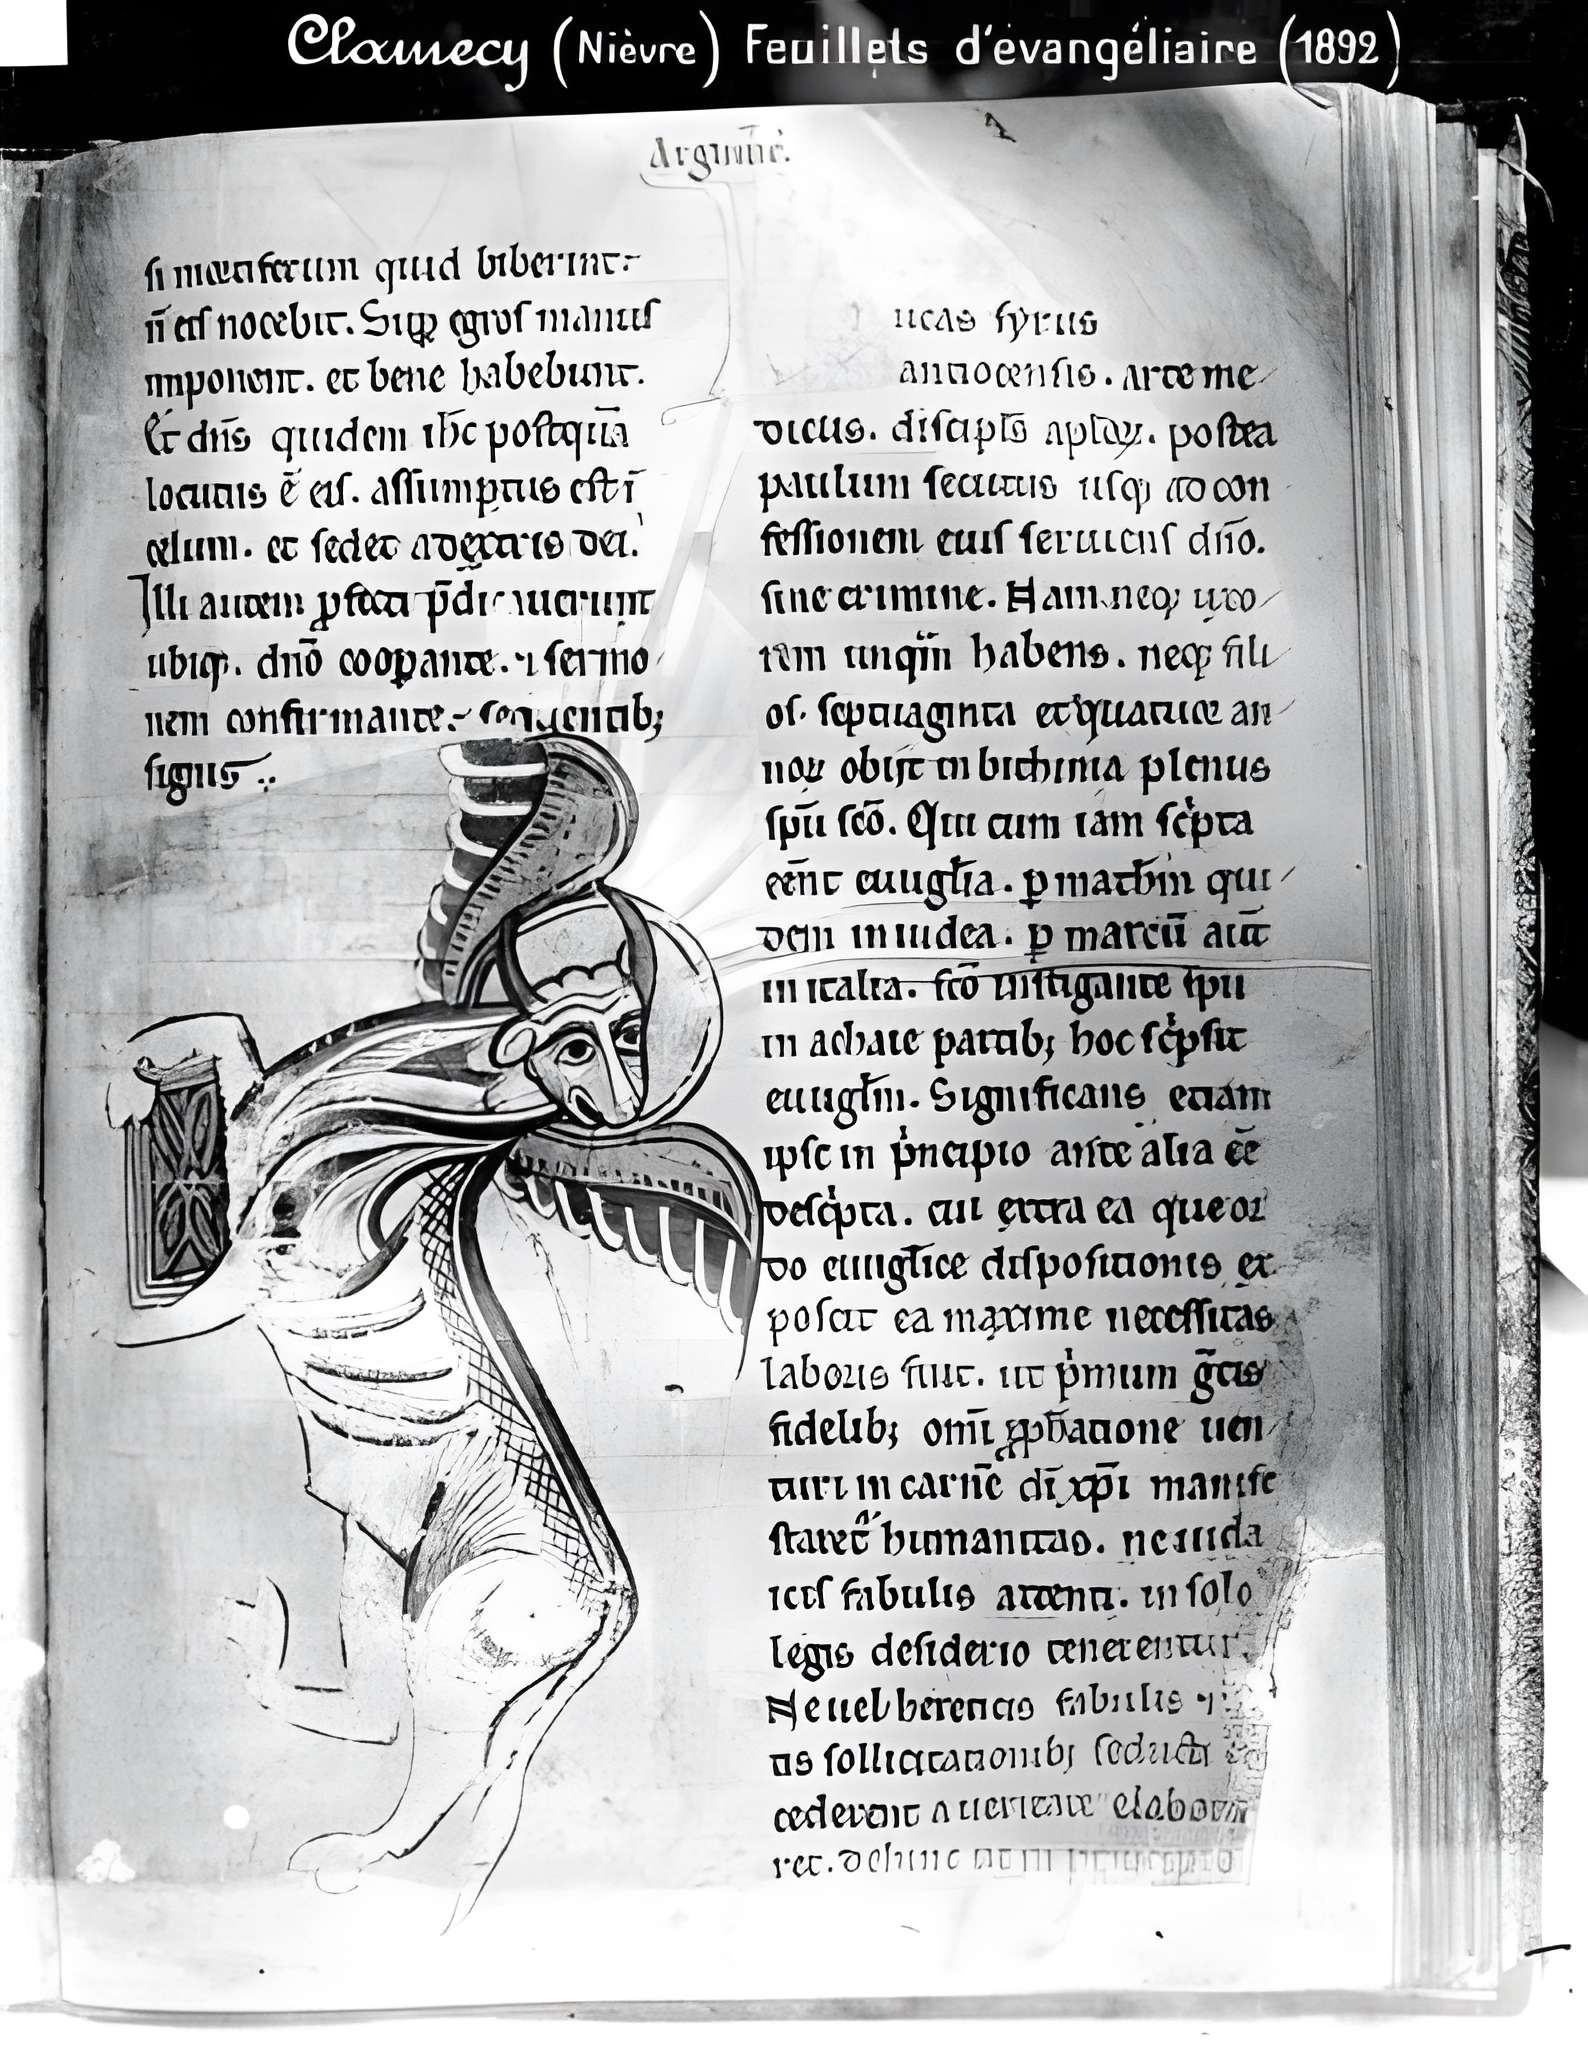 Clamecy (Nièvre) Feuillets d'évangéliaire (1892)
si mortiferum quid biberint.
n̄ eis nocebit. Suꝑ egros manus
imponent. et bene habebunt.
Et dn̄s quidem ih̄c postquā
locutus ē eis. assumptus est ī
celum. et sedet adextris dei.
Illi autem ꝓfecti p̄dicauerunt
ubiqꝫ. dn̄o cooꝑante. ⁊ sermo
nem confirmante. sequentibꝫ
signis.
ucas syrus
antiocensis. arte me
dicus. discipl̄s apl̄oꝝ. postea
paulum secutus usqꝫ ad con
fessionem eius seruiens dn̄o.
sine crimine. Nam neqꝫ uxo
rem unqͣm habens. neqꝫ fili
os. septuaginta et quatuor an
noꝝ obijt in bithinia plenus
sp̄u sc̄o. Qui cum iam sc͛pta
eēnt euugl̄ia. ꝑ math̄m qui
dem in iudea. ꝑ marcū aūt
in italia. sc̄o instigante sp̄u
in achaie partibꝫ hoc sc͛psit
euugl̄m. Significans etiam
ipse in p͛ncipio ante alia eē
desc͛pta. cui extra ea que or
do euugl̄ice dispositionis ex
poscit ea maxime necessitas
laboris fuit. ut p͛mum grecis
fidelibꝫ omī ꝓph̄atione uen
turi in carnē dī xp̄i manife
staret᷑ humanitas. ne iuda
icis fabulis attenti. in solo
legis desiderio tenerentur.
Ne uel hereticis fabulis ⁊
tis sollicitationibꝫ seducti
cederent a ueritate elabora
ret. dehinc